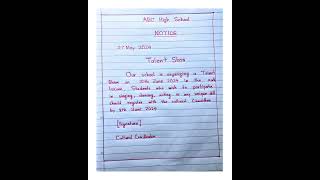 ABC High School
NOTICE
27 May 2024
Talent Show
Our school is organizing a Talent
Show on 10th June 2024 in the
Students who wish to participate
in singing, dancing, acting or any
should register with the cultural Committee
by 5th June 2024
[Signature]
Cultural Coordinator